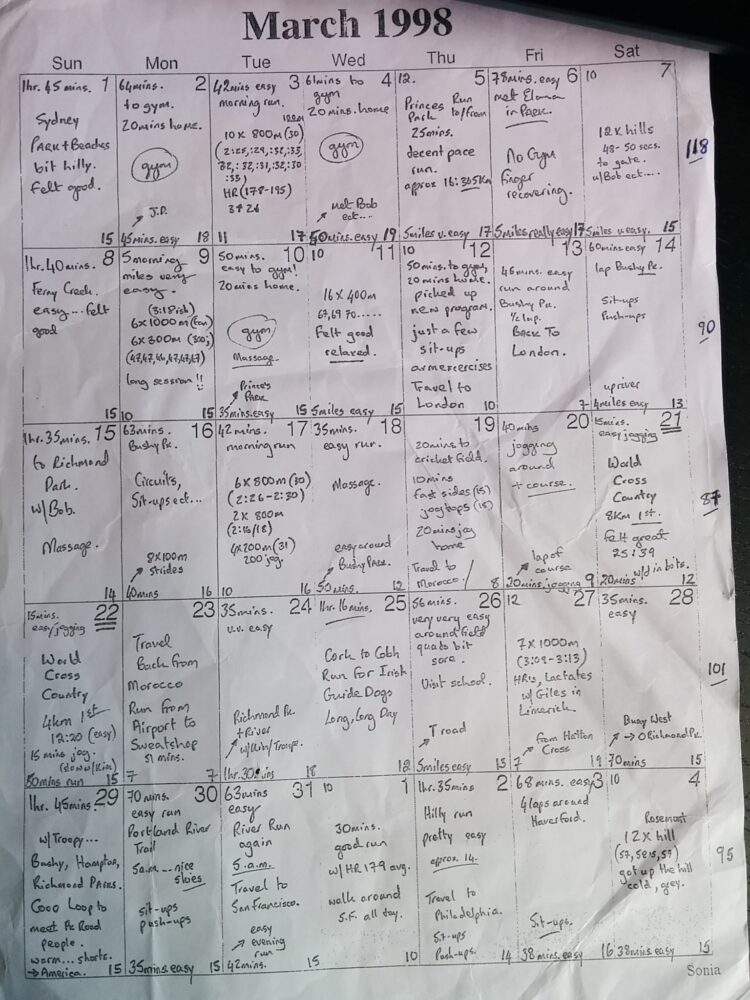 March 1998
Sun Mon Tue Wed Thu Fri Sat
1hr. 45 mins. 1
Sydney
PARK + Beaches
bit hilly.
felt good.
15
64mins. 2
to gym.
20mins home.
gym
J.P.
45mins. easy 18
42mins easy 3
morning run.
10 x 800m (30)
(2:25, :29, :32,
32, :32, :31, :32, :30
:33)
HR (178-195)
11 17
61mins to 4
gym
20 mins. home
gym
met Bob
ect....
50mins. easy 19
12. 5
Princes Run
Park to/from
25mins.
decent pace
run.
approx
5miles v. easy 17
78mins. easy 6
met Elana
in PARK.
No Gym
finger
recovering.
5miles really easy 17
10 7
12 x hills
48-50 secs.
to gate.
w/Bob ect....
5miles v. easy. 15
118
1hr. 40mins. 8
Ferny Creek.
easy... felt
good
15
5 morning 9
miles very
easy.
(3:18ish)
6 x 1000m
6 x 300m
(47,47,46,47,47,47)
long session !!
10 15
50mins. 10
easy to gym!
20mins home.
gym
Massage.
Prince's
PARK
35mins. easy 15
10 11
16 x 400m
67, 69 70 .....
Felt good
relaxed.
5miles easy 15
10 12
50mins. to gym,
20 mins home.
picked up
new program.
just a few
sit-ups
arm exercises
Travel to
London 10
13
46mins. easy
run around
Bushy Pk.
1/2 lap.
BACK TO
London.
7
60mins easy 14
lap Bushy Pk.
Sit-ups
Push-ups.
up river
4miles easy 13
90
1hr. 35mins. 15
to Richmond
Park.
w/Bob.
Massage.
14
63mins. 16
Bushy Pk.
Circuits,
Sit-ups ect...
8x100m
strides
40mins 16
42 mins. 17
morning run
6 x 800m (30)
(2:26-2:30)
2 x 800m
(2:16/18)
4 x 200m (31)
200 jog.
10 16
35mins. 18
easy run.
Massage.
easy around
Bushy Park.
50mins. 12
19
20mins to
cricket field.
10mins
fast sides (15)
jog tops (15)
20mins jog
home
Travel to
Morocco! 8
40mins 20
jogging
around
+ course.
lap of
course
20mins. jogging 9
15mins. 21
easy jogging
World
Cross
Country
8Km 1st.
felt great
25:39
w/d in bits.
20mins 12
87
15mins. 22
easy jogging
World
Cross
Country
4km 1st
12:20 (easy)
15 mins jog.
(down w/Kim)
50mins run 15
23
Travel
Back from
Morocco
Run from
Airport to
Sweatshop
51 mins.
7 7
35mins. 24
v.v. easy
Richmond Pk.
+ River
1hr. 30mins 18
1hr. 16mins. 25
Cork to Cobh
Run for Irish
Guide Dogs
Long, Long Day
12
56 mins. 26
very very easy
around field
quads bit
sore.
Visit school.
T road
5miles easy 13
12 27
7 x 1000m
(3:09-3:13)
HR's, Lactates
w/ Giles in
Limerick.
from Hatton
Cross
7 19
35mins. 28
easy
Bushy West
→ Richmond Pk.
70mins 15
101
1hr. 45mins. 29
w/ Troopy...
Bushy, Hampton,
Richmond PARKS.
Good Loop to
meet Pk Road
people.
warm... shorts.
→ America. 15
70mins. 30
easy run
Portland River
Trail
5a.m.... nice
skies
sit-ups
push-ups
35mins. easy 15
63mins 31
easy
River Run
again
5.a.m.
Travel to
San Francisco.
easy
evening
run
42mins. 15
10 1
30mins.
good run
w/HR 179 avg.
walk around
S.F. all day.
10
1hr. 35mins 2
Hilly run
pretty easy
approx. 14.
Travel to
Philadelphia.
Sit-ups
Push-ups. 14
68 mins. easy 3
4 laps around
Haverford.
Sit-ups.
38 mins. easy 16
10 4
Rosemont
12 x hill
got up the hill
cold, grey.
38mins. easy 15
95
Sonia